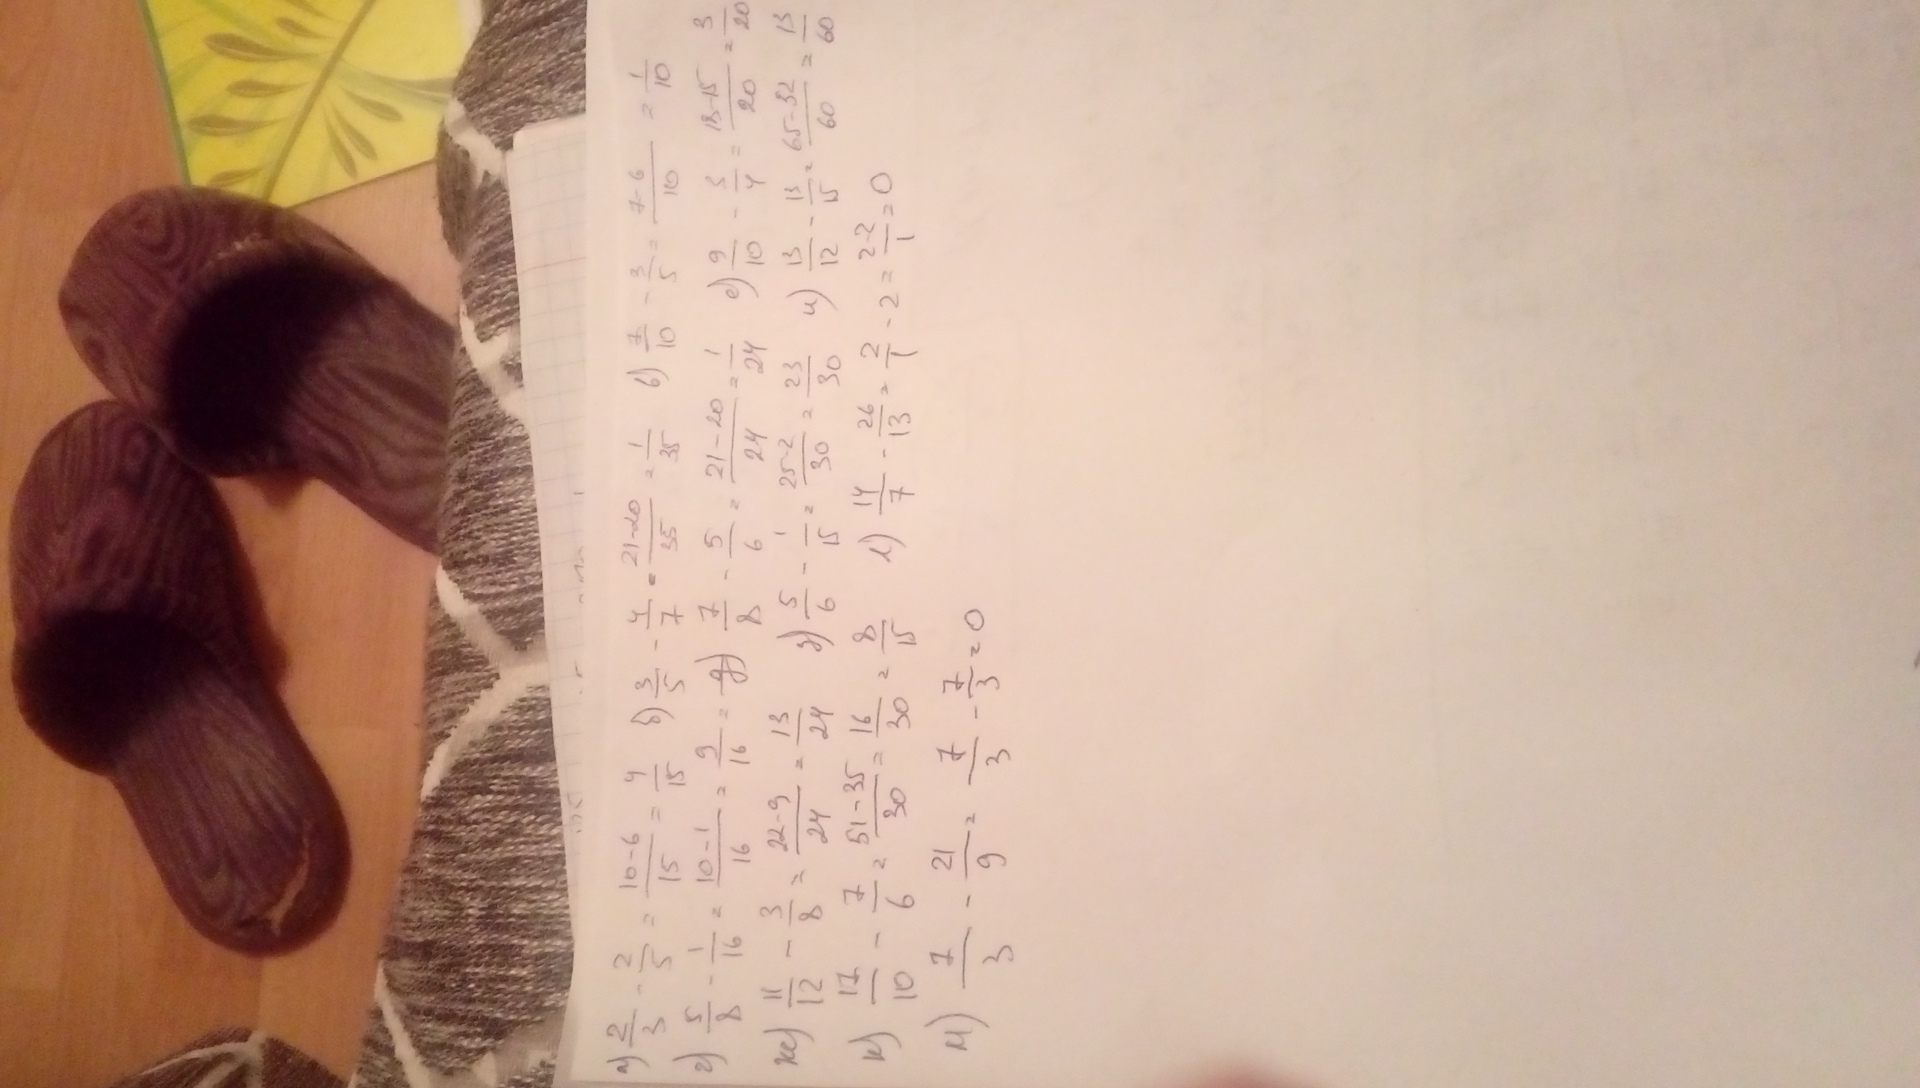 а) 2/3 - 2/5 = 10-6/15 = 4/15 б) 3/5 - 4/7 = 21-20/35 = 1/35 в) 7/10 - 3/5 = 7-6/10 = 1/10
г) 5/8 - 1/16 = 10-1/16 = 9/16 = д) 7/8 - 5/6 = 21-20/24 = 1/24 е) 9/10 - 3/4 = 18-15/20 = 3/20
ж) 11/12 - 3/8 = 22-9/24 = 13/24 з) 5/6 - 1/15 = 25-2/30 = 23/30 и) 13/12 - 13/15 = 65-52/60 = 13/60
к) 17/10 - 7/6 = 51-35/30 = 16/30 = 8/15 л) 14/7 - 26/13 = 2/1 - 2 = 2-2/1 = 0
м) 7/3 - 21/9 = 7/3 - 7/3 = 0